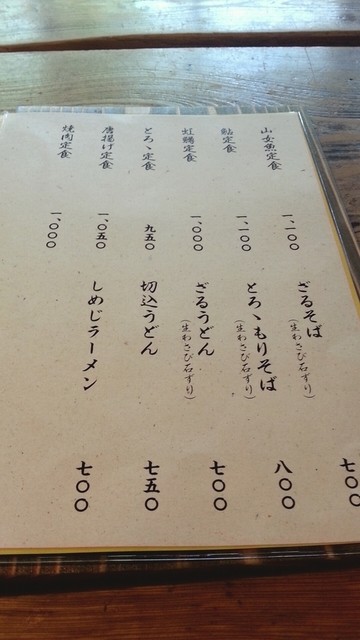 山女魚定食 一、一〇〇
鮎定食 一、一〇〇
虹鱒定食 一、〇〇〇
とろゝ定食 九五〇
唐揚げ定食 一、〇五〇
焼肉定食 一、〇〇〇
ざるそば(生わさび石ずり) 七〇〇
とろゝもりそば(生わさび石ずり) 八〇〇
ざるうどん(生わさび石ずり) 七〇〇
切込うどん 七五〇
しめじラーメン 七〇〇